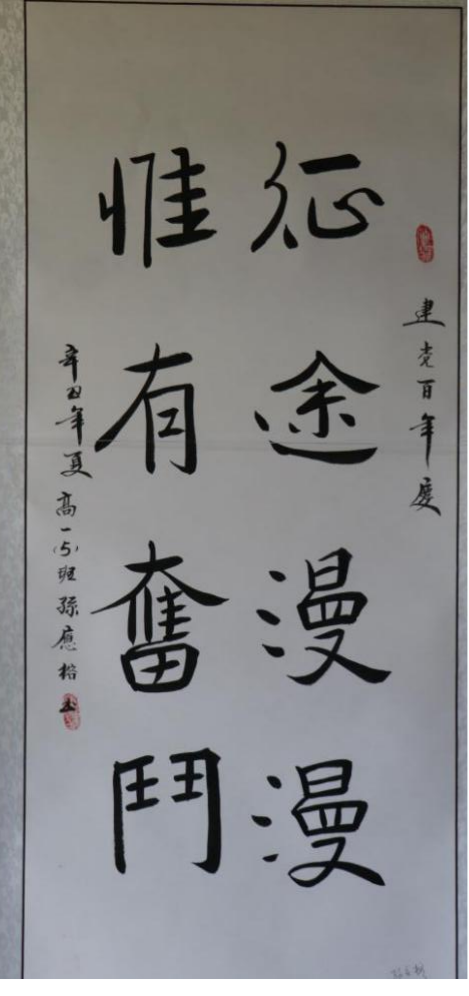 建党百年庆
征途漫漫
惟有奮鬥
辛丑年夏高一(5)班孫應楷书